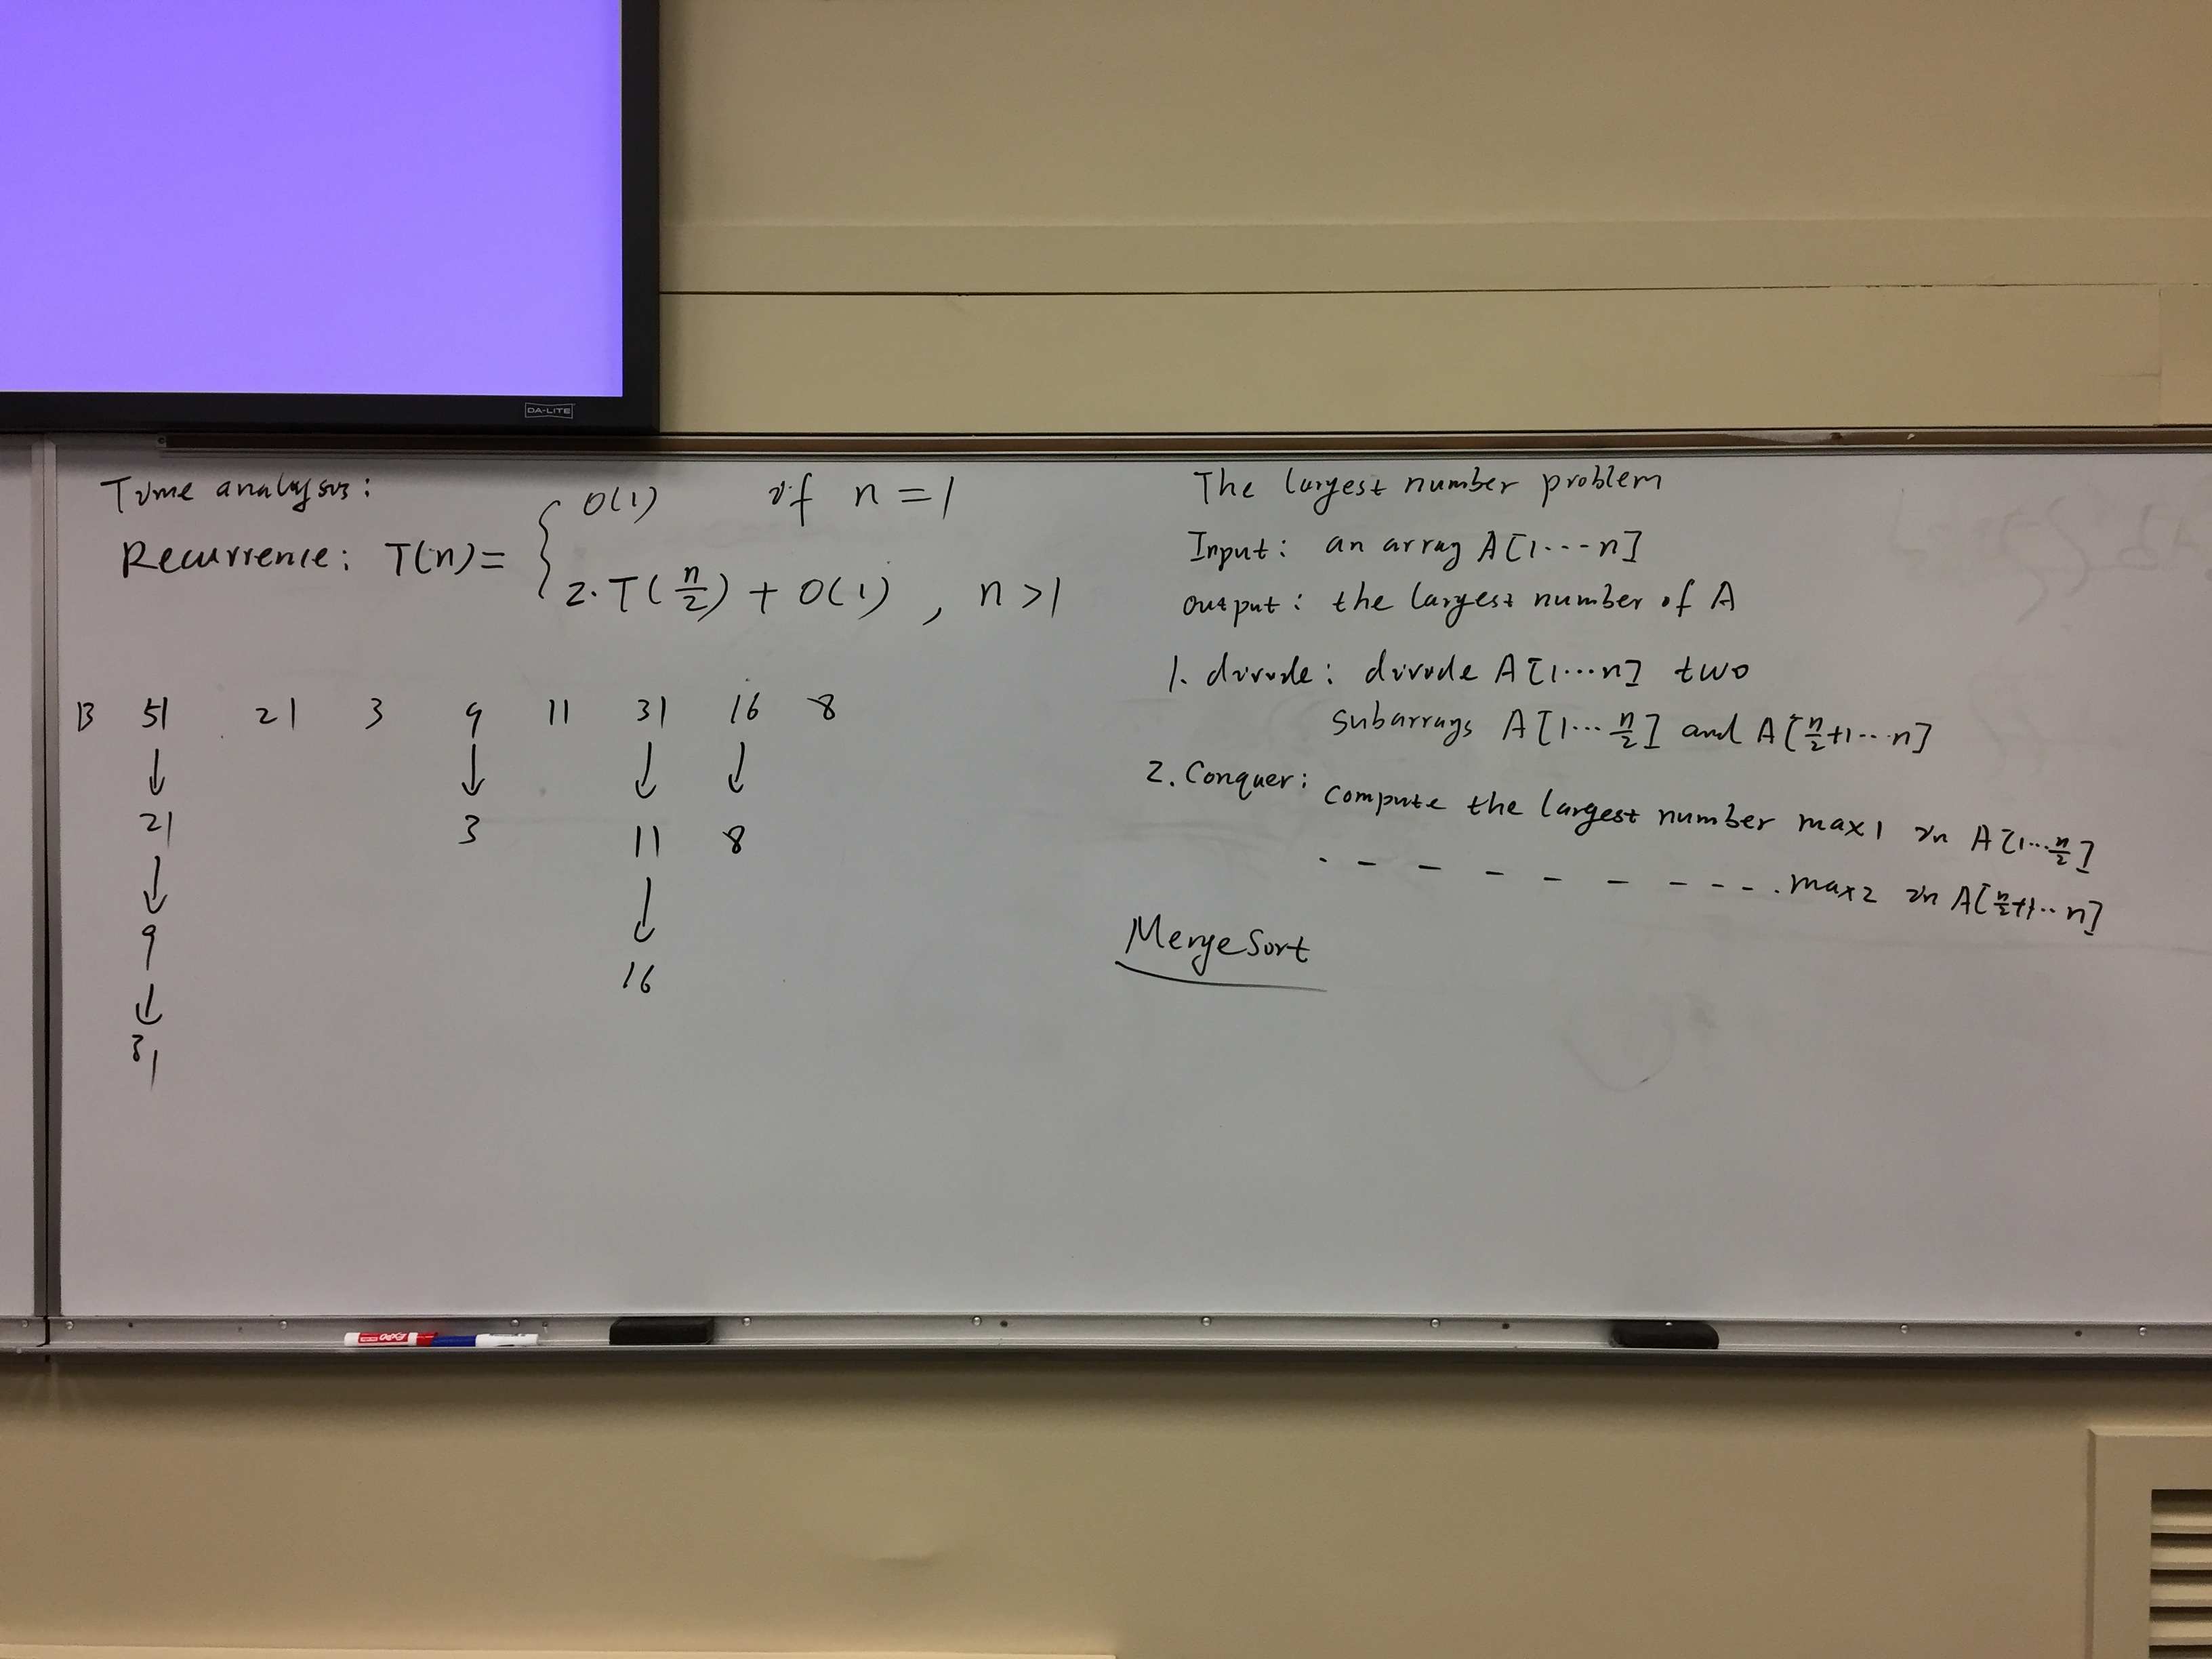 DA-LITE
Time analysis:
Recurrence: T(n) = { O(1) if n = 1
2·T(n/2) + O(1), n > 1
B 51 21 3 9 11 31 16 8
↓ ↓ ↓ ↓
21 3 11 8
↓ ↓
9 16
↓
31
The largest number problem
Input: an array A[1···n]
output: the largest number of A
1. divide: divide A[1···n] two
subarrays A[1···n/2] and A[n/2+1···n]
2. Conquer: compute the largest number max1 in A[1···n/2]
- - - - - - - - - - max2 in A[n/2+1···n]
MergeSort
EXPO